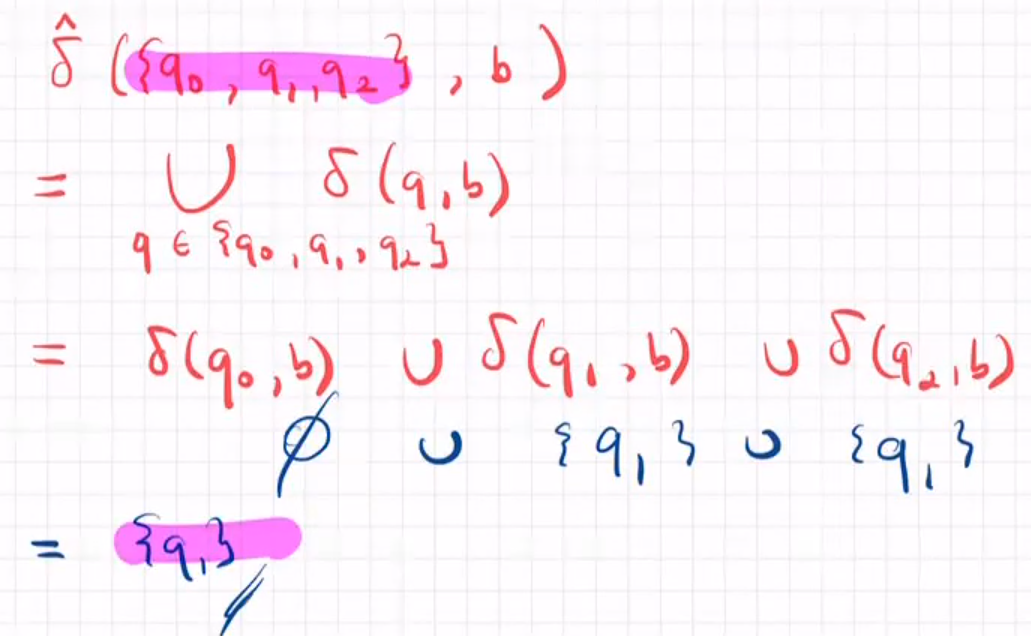 δ̂ ({q₀, q₁, q₂}, b)
= ∪ δ(q, b)
q ∈ {q₀, q₁, q₂}
= δ(q₀, b) ∪ δ(q₁, b) ∪ δ(q₂, b)
∅ ∪ {q₁} ∪ {q₁}
= {q₁}